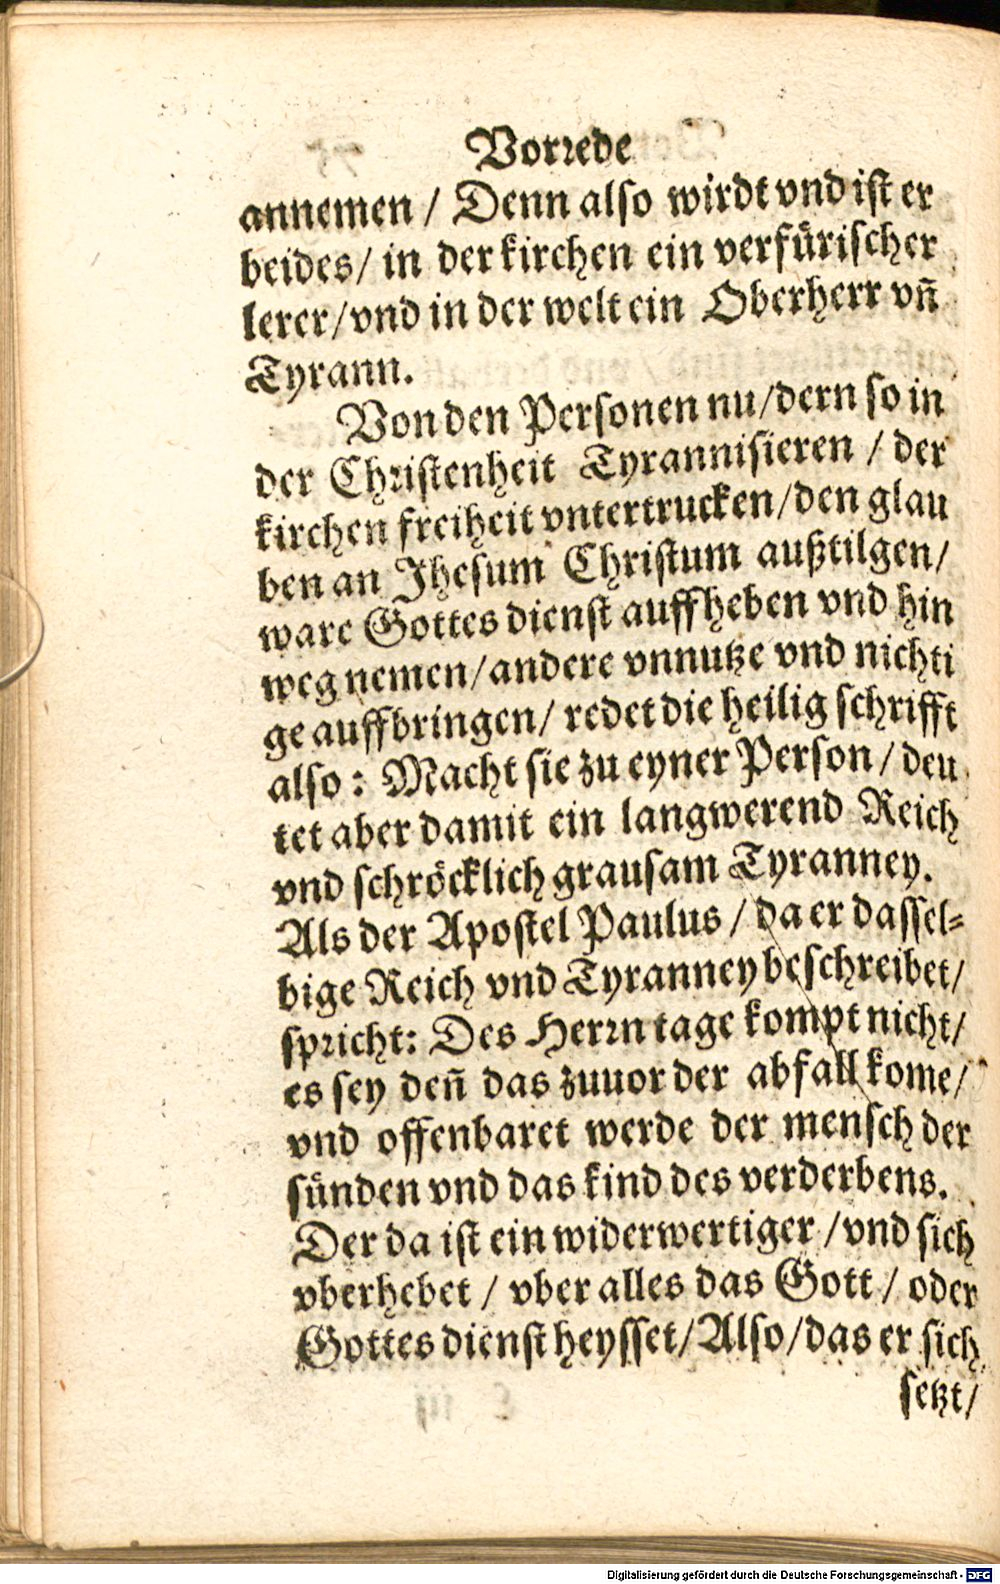 Vorrede
annemen / Denn also wirdt vnd ist er
beides / in der kirchen ein verfürischer
lerer / vnd in der welt ein Oberherr vñ
Tyrann.
Von den Personen nu / dern so in
der Christenheit Tyrannisieren / der
kirchen freiheit vntertrucken / den glau
ben an Jhesum Christum außtilgen /
ware Gottes dienst auffheben vnd hin
weg nemen / andere vnnutze vnd nichti
ge auffbringen / redet die heilig schrifft
also : Macht sie zu eyner Person / deu
tet aber damit ein langwerend Reich
vnd schröcklich grausam Tyranney.
Als der Apostel Paulus / da er dassel-
bige Reich vnd Tyranney beschreibet /
spricht: Des Herrn tage kompt nicht /
es sey deñ das zuuor der abfall kome /
vnd offenbaret werde der mensch der
sünden vnd das kind des verderbens.
Der da ist ein widerwertiger / vnd sich
vberhebet / vber alles das Gott / oder
Gottes dienst heysset / Also / das er sich
setzt /
Digitalisierung gefördert durch die Deutsche Forschungsgemeinschaft - DFG